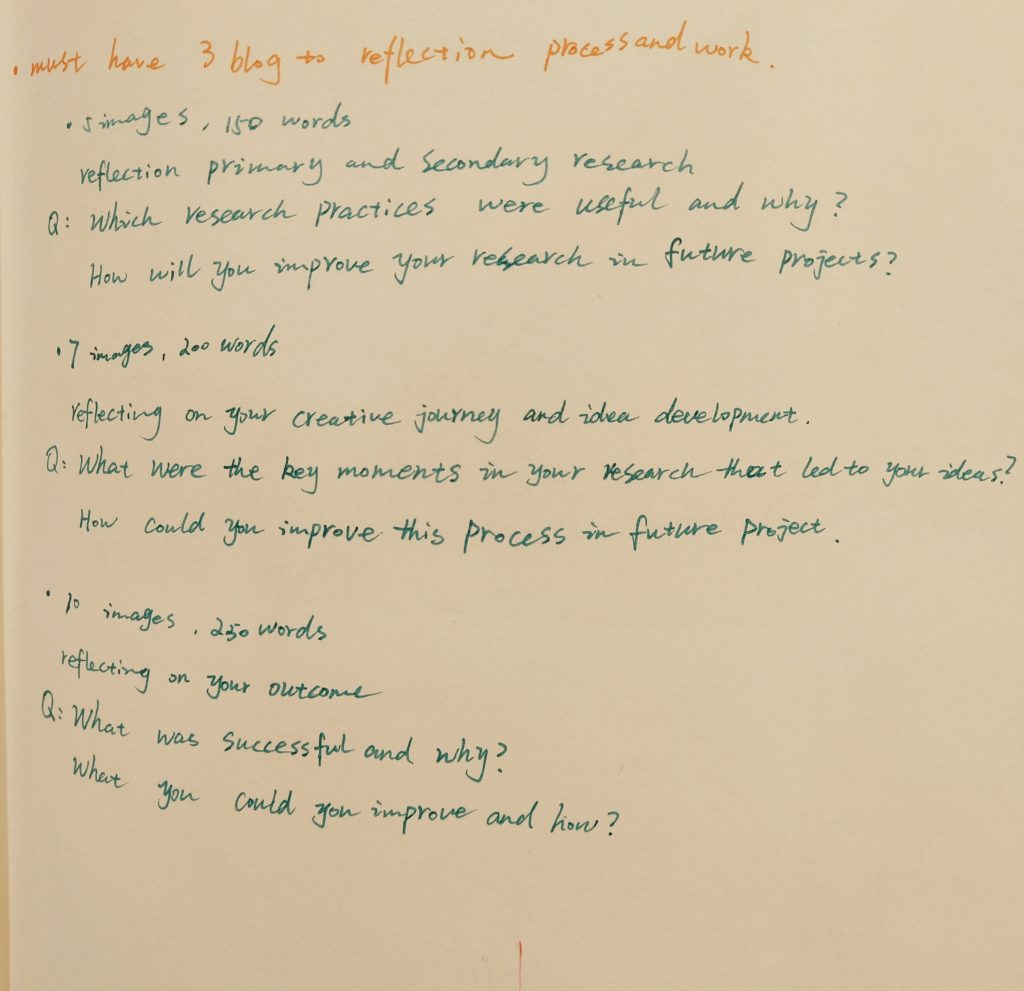 · must have 3 blog to reflection process and work.
· 5 images, 150 words
reflection primary and secondary research
Q: Which research practices were useful and why?
How will you improve your research in future projects?
· 7 images, 200 words
reflecting on your creative journey and idea development.
Q: What were the key moments in your research that led to your ideas?
How could you improve this process in future project.
· 10 images, 250 words
reflecting on your outcome
Q: What was successful and why?
What you could you improve and how?